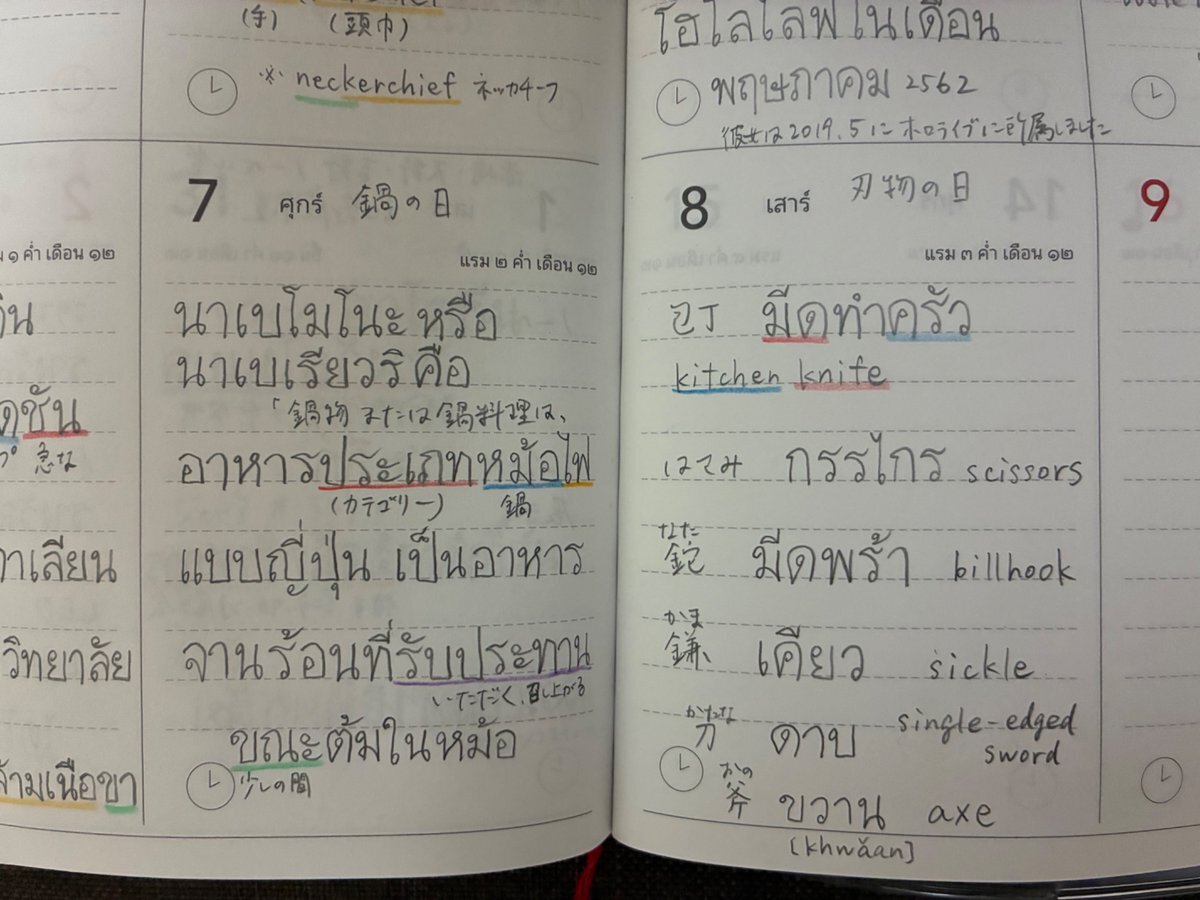 (手) (頭巾)
※ neckerchief ネッカチーフ
7 ศุกร์ 鍋の日
แรม ๒ ค่ำ เดือน ๑๒
นาเบโมโนะ หรือ
นาเบเรียวริ คือ
「鍋物 または 鍋料理は、
อาหารประเภทหม้อไฟ
(カテゴリー) 鍋
แบบญี่ปุ่น เป็นอาหาร
จานร้อนที่รับประทาน
いただく、召し上がる
ขณะต้มในหม้อ
少しの間
๑ ค่ำ เดือน ๑๒
ชัน
急な
วิทยาลัย
โฮโลไลฟ์ในเดือน
พฤษภาคม 2562
彼女は2019.5にホロライブに所属しました
8 เสาร์ 刃物の日
แรม ๓ ค่ำ เดือน ๑๒
包丁 มีดทำครัว
kitchen knife
はさみ กรรไกร scissors
なた
鉈 มีดพร้า billhook
かま
鎌 เคียว sickle
かたな
刀 ดาบ single-edged
sword
おの
斧 ขวาน axe
[khwǎan]
9